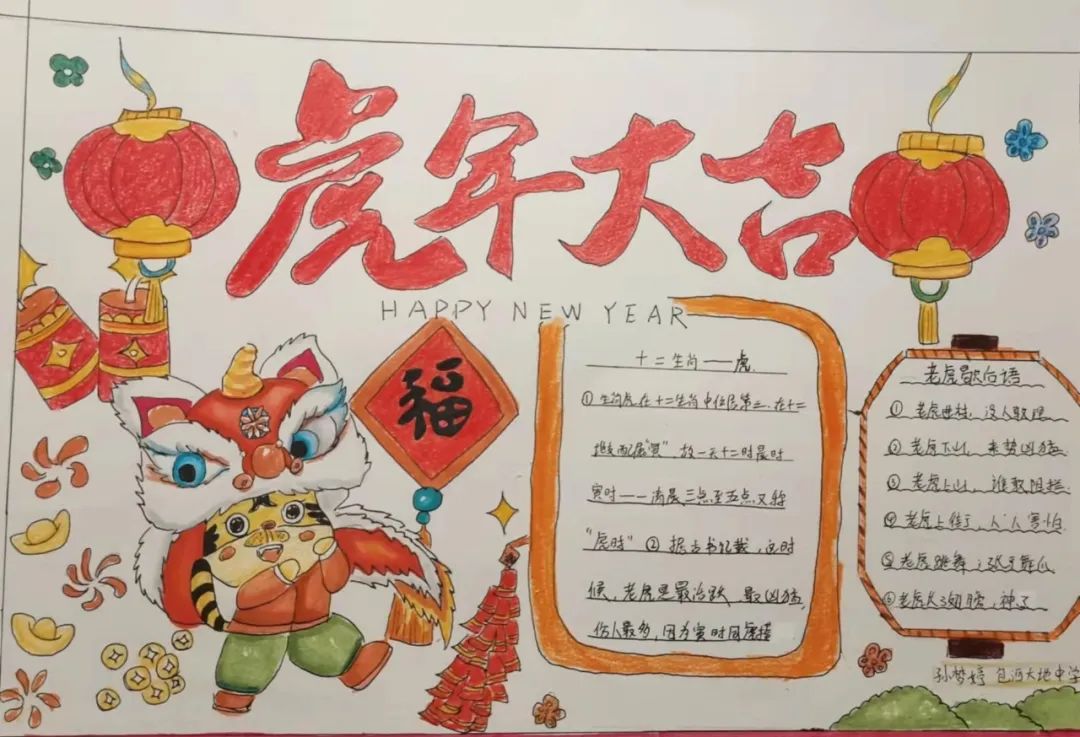 虎年大吉
HAPPY NEW YEAR
福
十二生肖——虎.
①生肖虎在十二生肖中位居第三.在十二
地支配属"寅",故一天十二时辰时
寅时——清晨三点至五点又称
"虎时" ②据古书记载,这时
候,老虎最活跃 最凶猛,
伤人最多,因为寅时同虎搭
老虎歇后语
①老虎进村,没人敢理
②老虎下山,来势凶猛
③老虎上山,谁敢阻拦
④老虎上街,人人害怕
⑤老虎跳舞:张牙舞爪
⑥老虎长了翅膀,神了
孙梦婷 包河大地中学